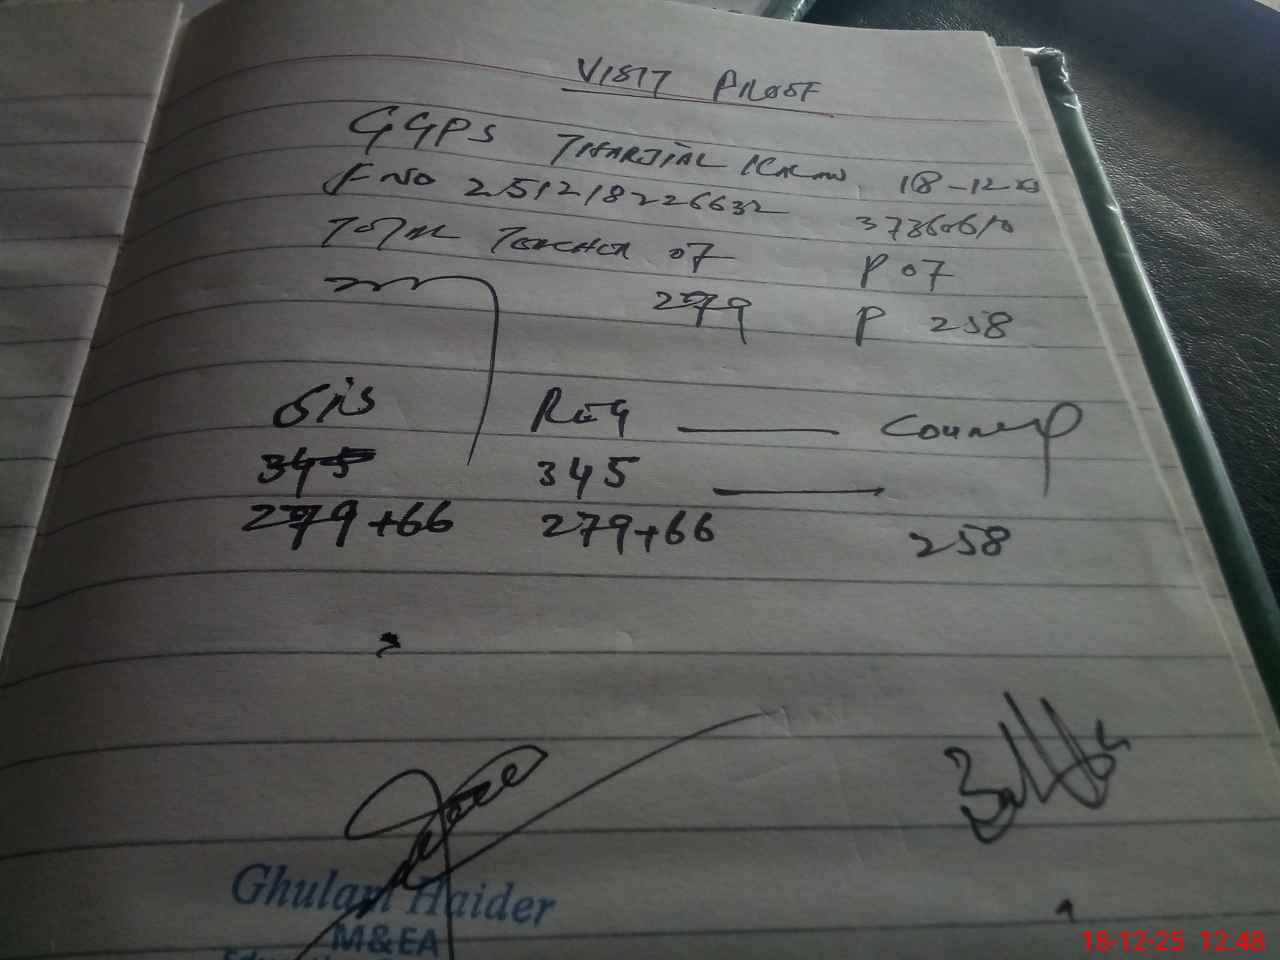 VISIT PROOF
GGPS THARJIAL KALAN 18-12-25
F NO 251218226632 37360610
TOTAL TEACHER 07 P 07
279 P 258
SIS REG COUNT
345 345
279+66 279+66 258
Ghulam Haider
M&EA
18-12-25 12:48